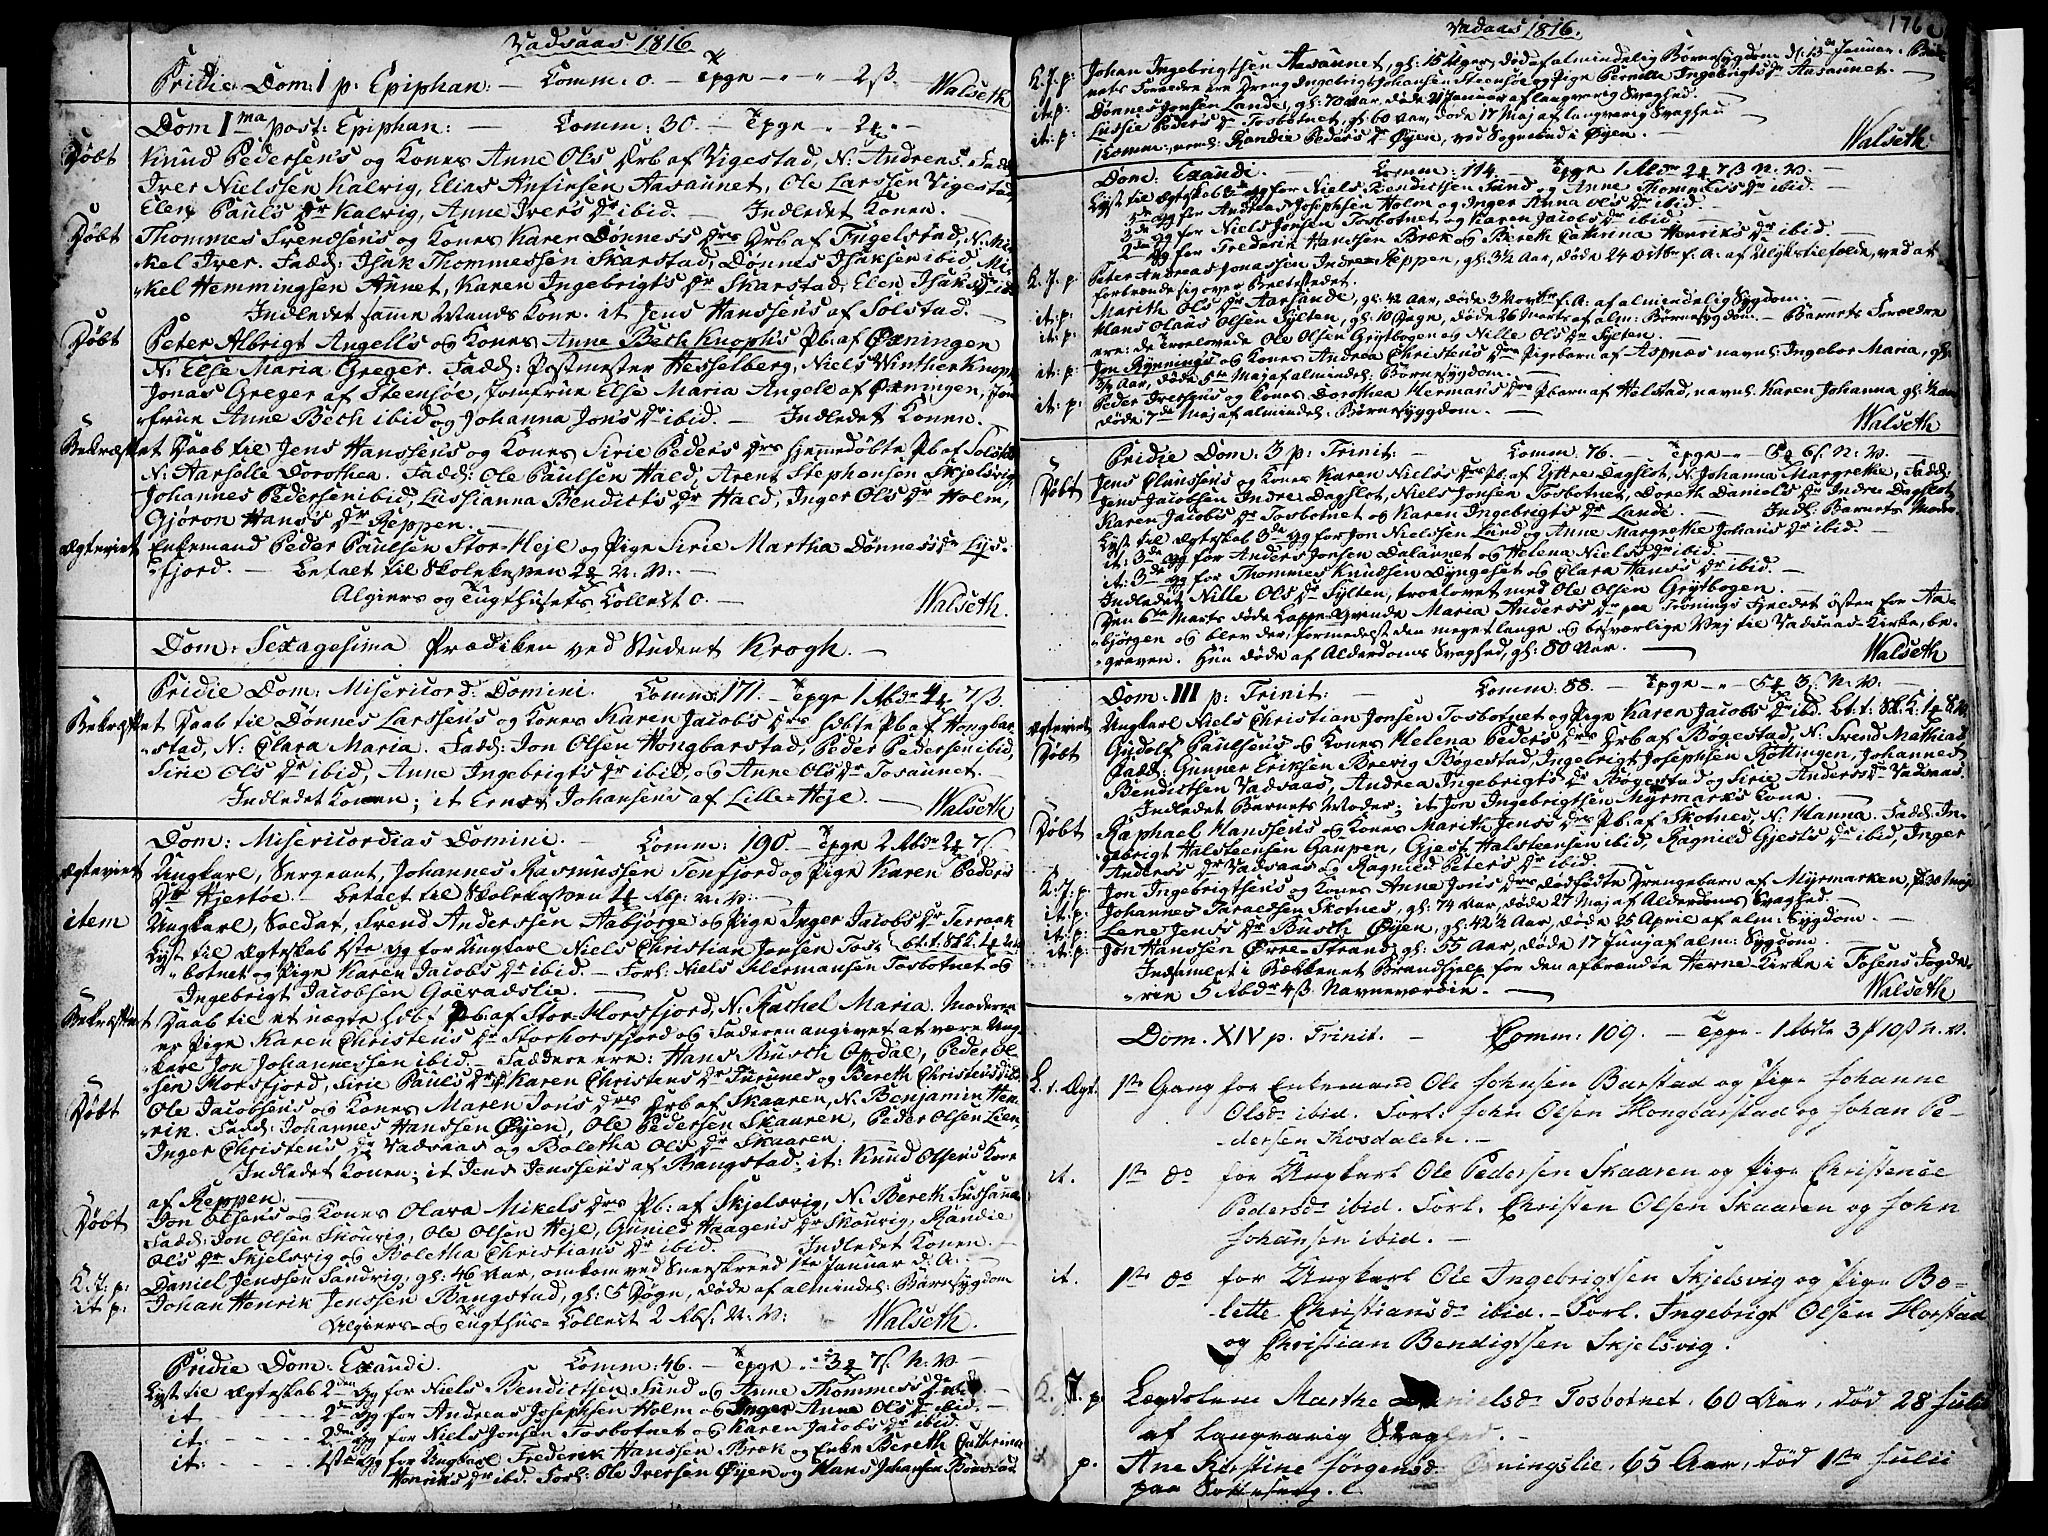 Vadsaas 1816.
Pridie Dom: 1 p: Epiphan: — Comm: 0. — Tpge — " — " — 2 ß. Walseth
Dom I ma post: Epiphan: — Comm: 30. — Tpge — " 2 " —
Döbt Knud Pedersens og Kones Anne Ols Dr Drb af Vigestad, N: Andreas. Fadd:
Iver Nielssen Kalvig, Elias Anfinsen Aasaunet, Ole Larssen Vigestad,
Elen Pauls Dr Kalvig, Anne Ivers Dr ibid. — Indledet Konen. —
Döbt Thommes Svendsens og Kones Karen Dønness Drs Drb af Fugelstad, N: Mi-
kel Iver. Fadd: Isak Thommessen Skarstad, Dønnes Isaksen ibid, Mi-
kel Hemmingsen Aunet, Karen Ingebrigts Dr Skarstad, Elen Isaks Dr ibid
Indledet samme Mands Kone. it Jens Hanssens af Solstad. —
Döbt Peter Albrigt Angells og Kones Anne Beth Knophs Pb: af Øxningen
N: Else Maria Greger. Fadd: Postmester Hesselberg, Niels Winther Knoph
Jonas Greger af Steensøe, Jomfrue Else Maria Angell af Øxningen, Jom-
frue Anne Beth ibid og Johanna Jons Dr ibid. — Indledet Konen. —
Bekræftet Daab til Jens Hanssens og Kones Sirie Peders Drs hjemmedøbte Pb af Solstad
N: Aarsille Dorothea. Fadd: Ole Paulsen Hald, Arent Stephansen Skjelsvig,
Johannes Pedersen ibid, Lussianna Bendicts Dr Hald, Inger Ols Dr Holm,
Gjøron Hans's Dr Reppen. —
Ægteviet Enkemand Peder Paulsen Stor-Heje og Pige Sirie Martha Dønness Dr Lys-
fjord. — Betalt til Skolekassen 2 N: V:. —
Algiers og Tugthusets Collect 0. — Walseth.
Dom: Sexagesima Prædiken ved Student Krogh. —
Pridie Dom: Misericord: Domini. Comm: 171. — Tpge 1 Rbdr 4 7 ß.
Bekræftet Daab til Dønnes Larssens og Kones Karen Jacobs Drs hjbte Pb af Hongbar-
stad, N: Clara Maria. Fadd: Jon Olsen Hongbarstad, Peder Pedersen ibid,
Sirie Ols Dr ibid, Anne Ingebrigts Dr ibid, og Anne Ols Dr Tosaunet. —
Indledet Konen; it Ernst Johansens af Lille-Heje. — Walseth
Dom: Misericordias Domini. — Comm: 190. — Tpge 2 Rbdr 2 7 ß
Ægteviet Ungkarl, Sergeant, Johannes Rasmussen Tenfjord og Pige Karen Peders
Dr Hjertøe. — betalt til Skolekassen 4 N: V:. —
item Ungkarl, Soldat, Svend Anderssen Aabjørge og Pige Inger Jacobs Dr Terraak
Lyst til Ægteskab 1ste Gg for Ungkarl Niels Christian Jonsen Tos-
botnet og Pige Karen Jacobs Dr ibid. — Forl: Niels Hermansen Tosbotnet og
Ingebrigt Jacobsen Goivadslie. —
Bekræftet Daab til et uægte Pb: af Stor-Horsfjord, N: Rachel Maria. Moderen
er Pige Karen Christens Dr Storhorsfjord og Faderen angivet at være Ung-
karl Jon Johannessen ibid. — Faddere ere: Hans Busch Opdal, Peder Ol-
sen Horsfjord, Sirie Pauls Dr, Karen Christens Dr og Bereth Christens Dr ibid
Döbt Ole Jacobsens og Kones Maren Jons Drs Drb af Skaaren, N: Benjamin Hen-
rik. Fadd: Johannes Hanssen Øyen, Ole Pedersen Skaaren, Peder Olsen Lien,
Inger Christens Dr Vadsaas og Boletha Ols Dr Skaaren. —
Indledet Konen; it Jens Jenssens af Bangstad; it: Knud Olsens Kone
af Reppen. —
Döbt Jon Olsens og Kones Olava Mikels Drs Pb: af Skjelsvig, N: Bereth Sussanna
Fadd: Jon Olsen Skourig, Ole Olsen Heje, Gunild Haagens Dr Skourig, Randie
Ols Dr Skjelsvig og Boletha Christians Dr ibid. — Indledet Konen. —
K. J. p: Daniel Jenssen Sandvig, gl: 46 Aar, omkom ved Sneeskreed 1ste Januar d: A. —
it p: Johan Henrik Jenssen Bangstad, gl: 5 Døgn, døde af almindel: Børnesygdom
Algiers- og Tugthus- Collect 2 N: V: Walseth.
Pridie Dom: Exaudi. Comm: 46. — Tpge " 3 7 ß. N: V. —
Lyst til Ægteskab 2den Gg for Niels Bendictsen Sund og Anne Thommess Dr ibid. —
it — — 2den Gg for Andreas Josephsen Holm og Inger Anne Ols Dr ibid. —
it: — — 2den Gg for Niels Jonsen Tosbotnet og Karen Jacobs Dr ibid. —
it: — — 1ste Gg for Ungkarl Frederik Hanssen Bræk og Enke Bereth Cathrina
Henriks Dr ibid. Forl: Ole Iversen Øyen og Hans Johansen
Vadsaas 1816. 176
K. J. p: Johan Ingebrigtsen Aasaunet, gl: 15 Uger, døde af almindelig Børnesygdom d: 13de Januar. Bar-
nets Forældre ere Dreng Ingebrigt Johansen Steensøe og Pige Pernilla Ingebrigts Dr Aasaunet. —
it p: Dønnes Jonsen Lande, gl: 70 Aar, døde 21 Januar af langvarig Svaghed. —
it: p: Lussie Peders Dr Tosbotnet, gl: 60 Aar, døde 17 Maj af langvarig Svaghed —
Komm:, nemlig Randie Peders Dr Øyen, ved Sognebud i Øyen. — Walseth.
Dom: Exaudi. — Comm: 114. — Tpge 1 Rbdr 2 7 ß N: V. —
Lyst til Ægteskab 3de Gg for Niels Bendictsen Sund og Anne Thommess Dr ibid. —
3de Gg for Andreas Josephsen Holm og Inger Anna Ols Dr ibid. —
3de Gg for Niels Jonsen Tosbotnet og Karen Jacobs Dr ibid. —
2den Gg for Frederik Hanssen Bræk og Bereth Cathrina Henriks Dr ibid. —
K. J. p. Peter Andreas Jonassen Indre-Reppen, gl: 3½ Aar, døde 24 Octbr f. A: af Ulykkestilfælde, ved at
forbrænde sig over Beltestedet. —
it: p: Marith Ols Dr Aarsande, gl: 42 Aar, døde 3 Novbr f. A: af almindelig Sygdom. —
it: p: Hans Olaus Olsen Sylten, gl: 10 Dage, døde 26 Marts af alm: Børnesygdom. — Barnets Forældre
ere: de trolovede Ole Olsen Grytbogen og Nille Ols Dr Sylten. —
it: p: Jon Rynnings og Kones Andrea Christens Drs Pigebarn af Aspnæs navnl: Ingebor Maria, gl:
¾ Aar, døde 5te Maj af almindel: Børnesygdom. —
it: p: Peder Iverssens og Kones Dorothea Hermans Drs Pbarn af Helstad, navnl: Karen Johanna gl: ½ Aar
døde 7de Maj af almindel: Børnesyggdom. — Walseth
Pridie Dom: 3 p: Trinit: — Comm: 76. — Tpge — " 6 ß N: V. —
Döbt Jens Clausens og Kones Karen Nielss Drs Pb: af Yttre Dagslot, N: Johanna Margrethe, Fadd:
Jens Jacobsen Indre Dagslot, Niels Jonsen Tosbotnet, Doreth Daniels Dr Indre Dagslot
Karen Jacobs Dr Tosbotnet og Karen Ingebrigts Dr Lande. — Indl: Barnets Moder
Lyst til Ægteskab 3de Gg for Jon Nielssen Lund og Anne Margrethe Johans Dr ibid. —
it: 3de Gg for Anders Jonsen Dalaunet og Helena Niels Dr ibid. —
it: 3de Gg for Thommes Knudsen Lyngeset og Clara Hans's Dr ibid. —
Indledet Nille Ols Dr Sylten, trolovet med Ole Olsen Grytbogen. —
Den 6te Marts døde Lappe-Qvinde Maria Anderss Dr paa Terrings Fjeldet østen for Aa-
bjørgen og blev der, formedelst den meget lange og besværlige Vej til Vadsaas-Kirke, be-
graven. Hun døde af Alderdoms Svaghed, gl: 80 Aar. — Walseth
Dom. III p: Trinit: — Comm: 88. — Tpge — " — 5 3 ß. N: V: —
Ægteviet Ungkarl Niels Christian Jonsen Tosbotnet og Pige Karen Jacobs Dr ibid.
Döbt Gudolf Paulsens og Kones Helena Peders Drs Drb af Bøgestad, N: Svend Mathias
Fadd: Gunner Eriksen Brevig Bøgestad, Ingebrigt Josephsen Køttingen, Johannes
Bendictsen Vadsaas, Andrea Ingebrigts Dr Bøgestad og Sirie Anderss Dr Vadsaas.
Indledet Barnets Moder; it Jon Ingebrigtsen Myrmarks Kone. —
Döbt Raphael Hanssens og Kones Marith Jenss Drs Pb: af Skotnes, N: Hanna. Fadd: In-
gebrigt Halsteensen Gaupen, Gjest Halsteensen ibid, Ragnild Gjests Dr ibid, Inger
Anderss Dr Vadsaas og Ragnild Peters Dr ibid. —
K. J. p. Jon Ingebrigtsens og Kones Anne Jons Drs dødfødte Drengebarn af Myrmarken, 30 Maj
it: p: Johannes Taraldsen Skotnes, gl: 74 Aar, døde 27 Maj af Alderdoms Svaghed. —
it: p: Lene Jenss Dr Busch Øyen, gl: 42½ Aar, døde 25 April af alm: Sygdom. —
it: p: Jon Hanssen Øvre-Strand, gl: 55 Aar, døde 17 Junj af alm: Sygdom. —
Indsamlet i Bækkenet Brandhjelp for den afbrændte Herne-Kirke i Fosens Fogde-
rie 5 Rbdr 4 ß Navneværdie. — Walseth
Dom. XIV p. Trinit. — Comm: 109. — Tpge 1 Rbdr 3 10 ß N. V.
L. t. Ægt. 1ste Gang for Enkemand Ole Johnsen Barstad og Pige Johanne
Olsdr ibid. Forl. John Olsen Hongbarstad og Johan Pe-
dersen Thosdalen. —
it. 1ste do for Ungkarl Ole Pedersen Skaaren og Pige Christense
Pedersdr ibid. Forl. Christen Olsen Skaaren og John
Johansen ibid. —
it. 1ste do for Ungkarl Ole Ingebrigtsen Skjelsvig og Pige Bo-
lette Christiansdr ibid. — Forl. Ingebrigt Olsen Horstad
og Christian Bendigtsen Skjelsvig.
K. J. p. Legdslem Marthe Danielsdr Tosbotnet, 60 Aar, død 28 Julii
af langvarig Svaghed. —
p. Ane Kirstine Jørgensdr Øxningslie, 65 Aar, død 1ste Julii
paa